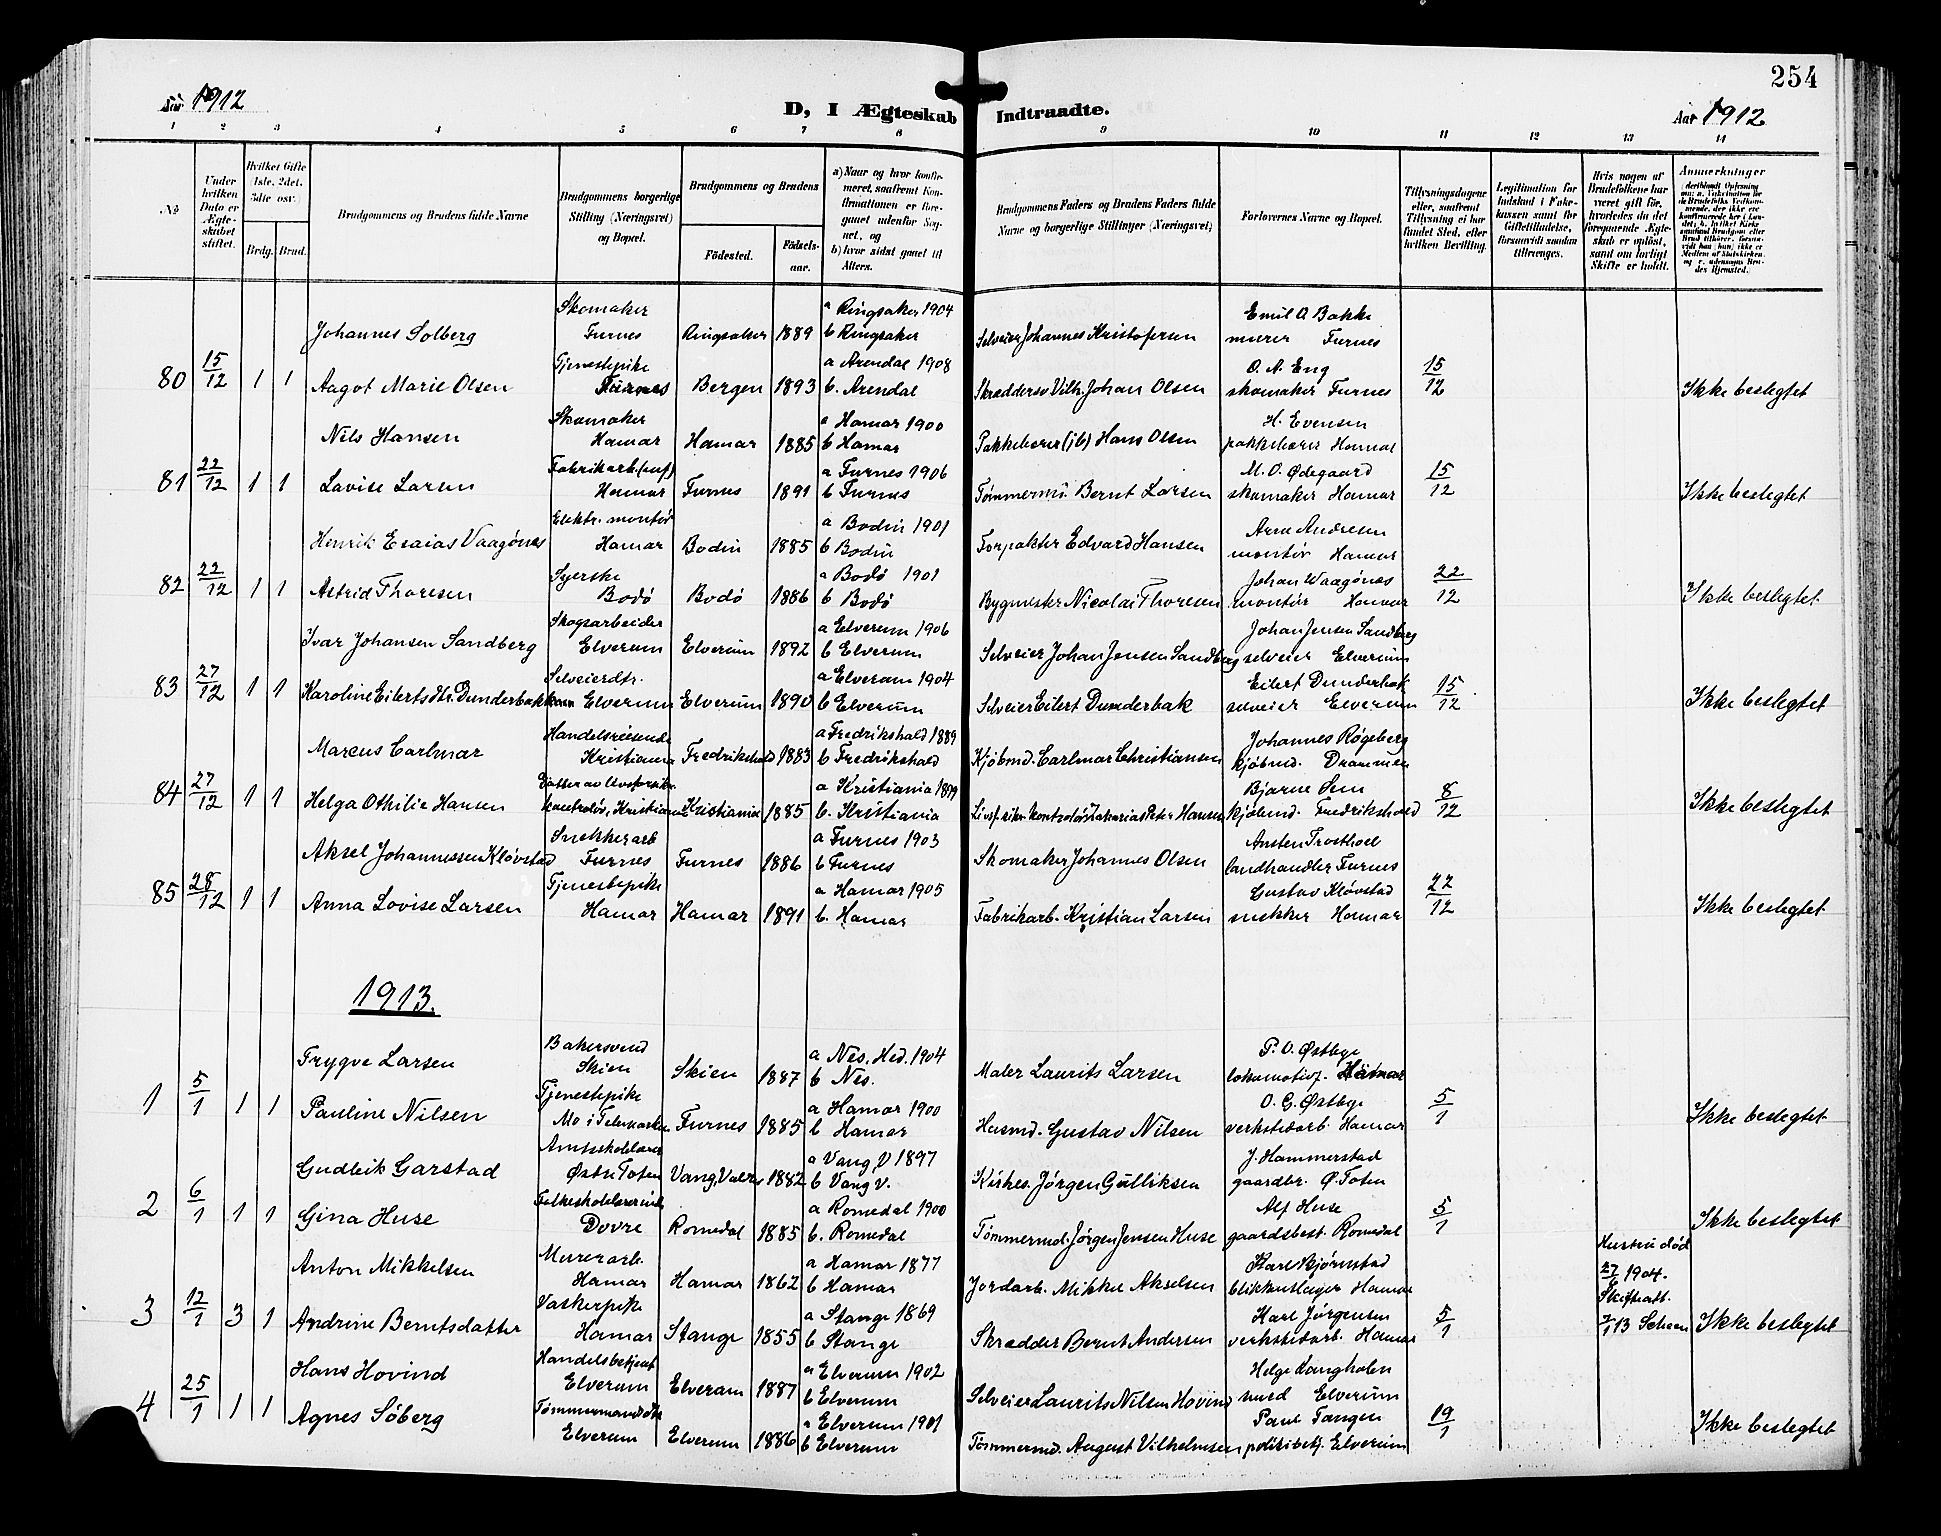 254
Aar 1912
D, I Ægteskab Indtraadte.
Aar 1912
1 2 3 4 5 6 7 8 9 10 11 12 13 14
No
Under hvilken Dato er Ægteskabet stiftet.
Hvilket Gifte (1ste, 2det, 3die osv.)
Brdg. Brud.
Brudgommens og Brudens fulde Navne
Brudgommens borgerlige Stilling (Næringsvei) og Bopæl.
Brudgommens og Brudens
Födested.
Födselsaar.
a) Naar og hvor konfirmeret, saafremt Konfirmationen er foregaaet udenfor Sognet, og
b) hvor sidst gaaet til Alters.
Brudgommens Faders og Brudens Faders fulde Navne og borgerlige Stillinger (Næringsvei)
Forlovernes Navne og Bopæl.
Tillysningsdagene eller, saafremt Tillysning ei har fundet Sted, efter hvilken Bevilling.
Legitimation for Indskud i Enkekassen samt for Giftetilladelse, forsaavidt saadan tiltrænges.
Hvis nogen af Brudefolkene har været gift för, hvorledes da det foregaaende Ægteskab er oplöst, samt om lovligt Skifte er holdt.
Anmærkninger
80 15/12 1 1
Johannes Solberg Skomaker Furnes Ringsaker 1889 a Ringsaker 1904 b Ringsaker Selveier Johannes Kristofersen Emil A Bakke murer Furnes
Aagot Marie Olsen Tjenestepike Furnes Bergen 1893 a Arendal 1908 b. Arendal Skræddersv Vilh. Johan Olsen O. A. Eng skomaker Furnes 15/12 Ikke beslegtet
81 22/12 1 1
Nils Hansen Skomaker Hamar Hamar 1885 a Hamar 1900 b Hamar Pakkebærer (jb) Hans Olsen H. Evensen pakkebærer Hamar
Lovise Larsen Fabrikarb. Hamar Furnes 1891 a Furnes 1906 b Furnes Tømmermd. Bernt Larsen M. O. Ødegaard skomaker Hamar 15/12 Ikke beslegtet
82 22/12 1 1
Henrik Esaias Vaagönes Elektr. montör Hamar Bodin 1885 a Bodin 1901 b Bodin Forpakter Edvard Hansen Arne Andresen montör Hamar
Astrid Thoresen Syerske Bodö Bodö 1886 a Bodö 1901 b Bodö Bygmester Nicolai Thoresen Johan Waagönes montör Hamar 22/12 Ikke beslegtet
83 27/12 1 1
Ivar Johansen Sandberg Skogsarbeider Elverum Elverum 1892 a Elverum 1906 b Elverum Selveier Johan Jensen Sandberg Johan Jensen Sandberg selveier Elverum
Karoline Eilertsdtr. Dunderbakken Selveierdtr. Elverum Elverum 1890 a Elverum 1904 b Elverum Selveier Eilert Dunderbak Eilert Dunderbak selveier Elverum 15/12 Ikke beslegtet
84 27/12 1 1
Marcus Carlmar Handelsreisende Kristiania Fredrikshald 1883 a Fredrikshald 1889 b Fredrikshald Kjöbmd. Carlmar Christiansen Johannes Røgeberg kjöbmd. Drammen
Helga Othilie Hansen Datter av Livsforsikr. kontrolör, Kristiania Kristiania 1885 a Kristiania 1899 b. Kristiania Livsf.sikr. kontrolör Zakarias Peter Hansen Bjarne kjöbmd. Fredrikshald 8/12 Ikke beslegtet
85 28/12 1 1
Aksel Johannessen Kløvstad Snekkerarb Furnes Furnes 1886 a Furnes 1903 b Furnes Skomaker Johannes Olsen Ansten Trosthoel landhandler Furnes
Anna Lovise Larsen Tjenestepike Hamar Hamar 1891 a Hamar 1905 b. Hamar Fabrikarb. Kristian Larsen Gustav Kløvstad snekker Hamar 22/12 Ikke beslegtet
1913.
1 5/1 1 1
Trygve Larsen Bakersvend Skien Skien 1887 a Nes, Hed. 1904 b Nes. Maler Laurits Larsen P. O. Østbye lokomotivf. Hamar
Pauline Nilsen Tjenestepike Mo i Telemarken Furnes 1885 a Hamar 1900 b Hamar Husmd. Gustav Nilsen O. G. Østbye verkstedarb. Hamar 5/1 Ikke beslegtet
2 6/1 1 1
Gudleik Garstad Amtsskolelærer Østre Toten Vang, Valdres 1882 a Vang V 1897 b Vang V. Kirkes. Jørgen Gulliksen J. Hammerstad gaardbr. Ø. Toten
Gina Huse Folkeskolelærerinde Dovre Romedal 1885 a Romedal 1900 b. Romedal Tømmermd. Jørgen Jensen Huse Alf Huse gaardsbest. Romedal 5/1 Ikke beslegtet
3 12/1 3 1
Anton Mikkelsen Murerarb. Hamar Hamar 1862 a Hamar 1877 b Hamar Jordarb. Mikkel Akselsen Karl Bjørnstad blikkenslager Hamar Hustru död 1904. Skifteatt. 13
Andrine Berntsdatter Vaskerpike Hamar Stange 1855 a Stange 1869 b Stange Skrædder Bernt Andersen Karl Jørgensen verkstedarb. Hamar 5/1 Ikke beslegtet
4 25/1 1 1
Hans Hovind Handelsbetjent Elverum Elverum 1887 a Elverum 1902 b Elverum Selveier Laurits Nilsen Hovind Helge Langholen Elverum
Agnes Söberg Tømmermandsdtr. Elverum Elverum 1886 a Elverum 1901 b Elverum Tømmermd. August Vilhelmsen Paul Tangen politibetj. Elverum 19/1 Ikke beslegtet